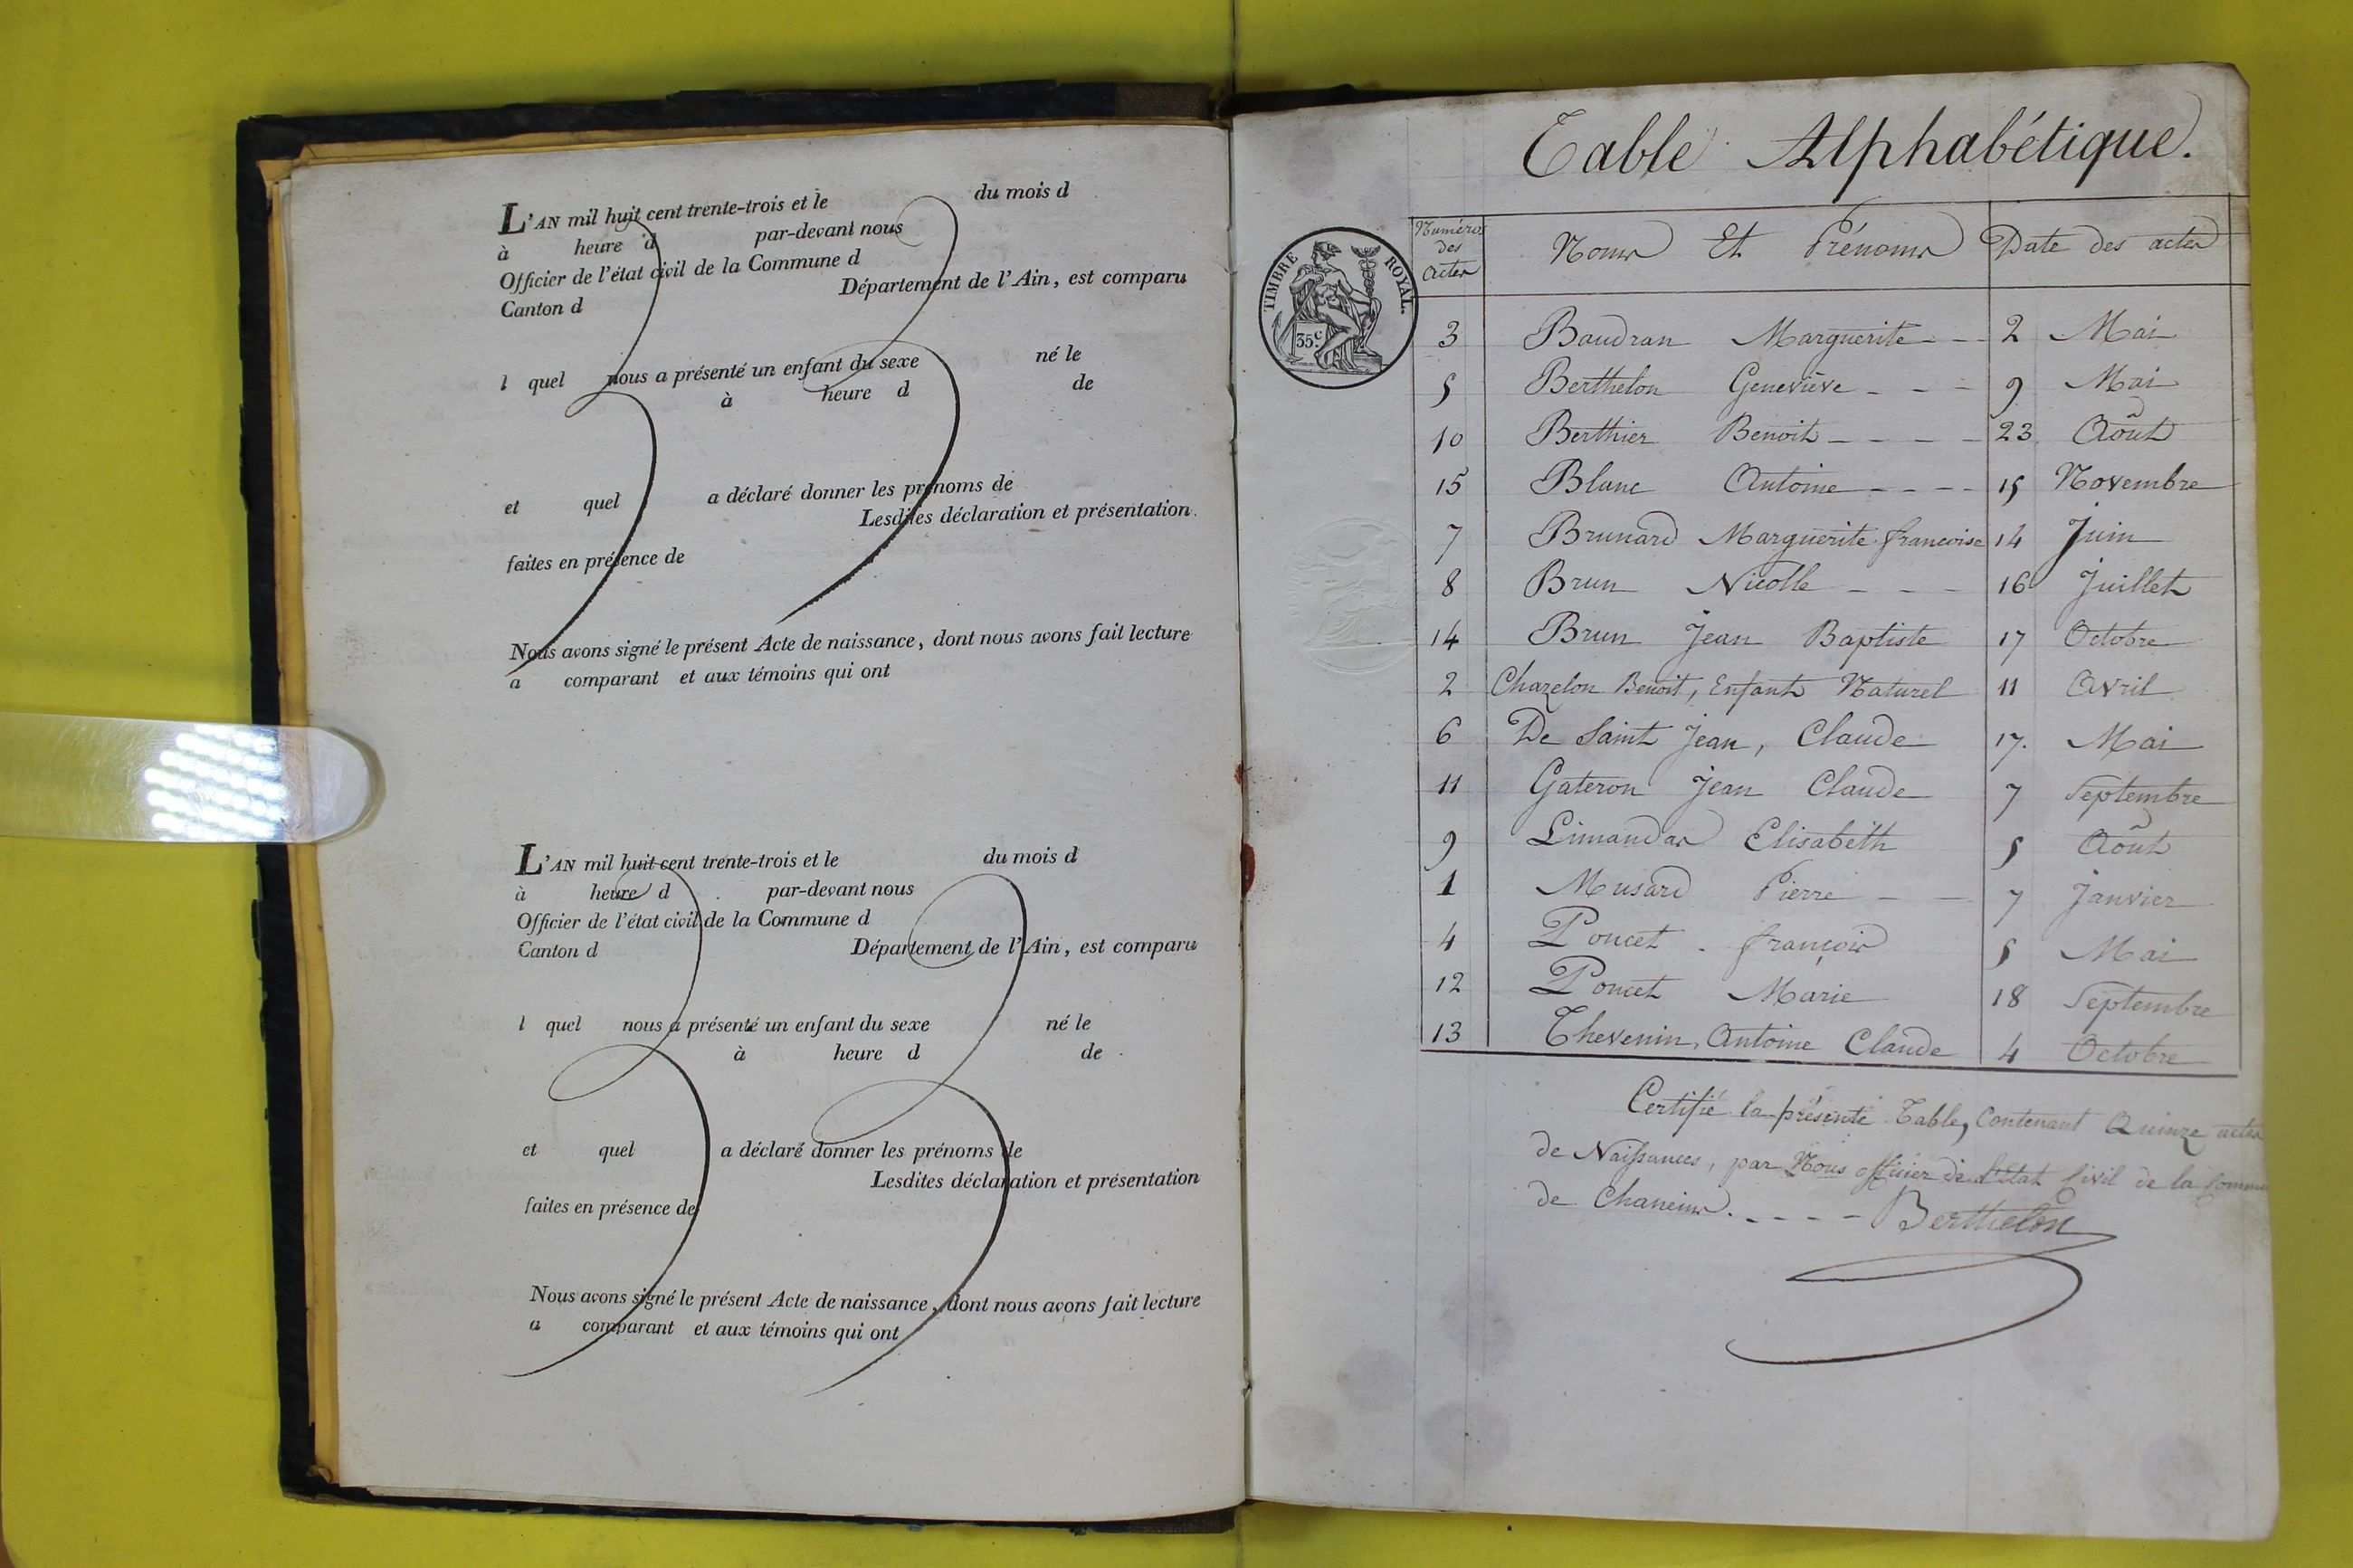 L'AN mil huit cent trente-trois et le du mois d
à heure d par-devant nous
Officier de l'état civil de la Commune d
Canton d Département de l'Ain, est comparu
l quel nous a présenté un enfant du sexe né le
à heure d de
et quel a déclaré donner les prénoms de
Lesdites déclaration et présentation
faites en présence de
Nous avons signé le présent Acte de naissance, dont nous avons fait lecture
a comparant et aux témoins qui ont
L'AN mil huit cent trente-trois et le du mois d
à heure d par-devant nous
Officier de l'état civil de la Commune d
Canton d Département de l'Ain, est comparu
l quel nous a présenté un enfant du sexe né le
à heure d de
et quel a déclaré donner les prénoms de
Lesdites déclaration et présentation
faites en présence de
Nous avons signé le présent Acte de naissance, dont nous avons fait lecture
a comparant et aux témoins qui ont
Table Alphabétique.
TIMBRE ROYAL.
35c.
Numéros des actes Noms Et Prénoms Date des actes
3 Baudran Marguerite - - 2 Mai
5 Berthelon Geneviève - - - 9 Mai
10 Berthier Benoit - - - - 23 Août
15 Blanc Antoine - - - - 15 Novembre
7 Brunard Marguerite francoise 14 Juin
8 Brun Nicolle - - - 16 Juillet
14 Brun Jean Baptiste 17 Octobre
2 Chazelon Benoit, Enfant Naturel 11 Avril
6 De Saint Jean, Claude 17. Mai
11 Gateron Jean Claude 7 Septembre
9 Limandas Elisabeth 5 Août
1 Musard Pierre - - 7 Janvier
4 Poncet . françois 5 Mai
12 Poncet Marie 18 Septembre
13 Thevenin, Antoine Claude 4 Octobre
Certifié la présente Table, Contenant Quinze actes
de Naissances, par Nous officier de l'état Civil de la Commu
de Chaneins. - - - - Berthelon